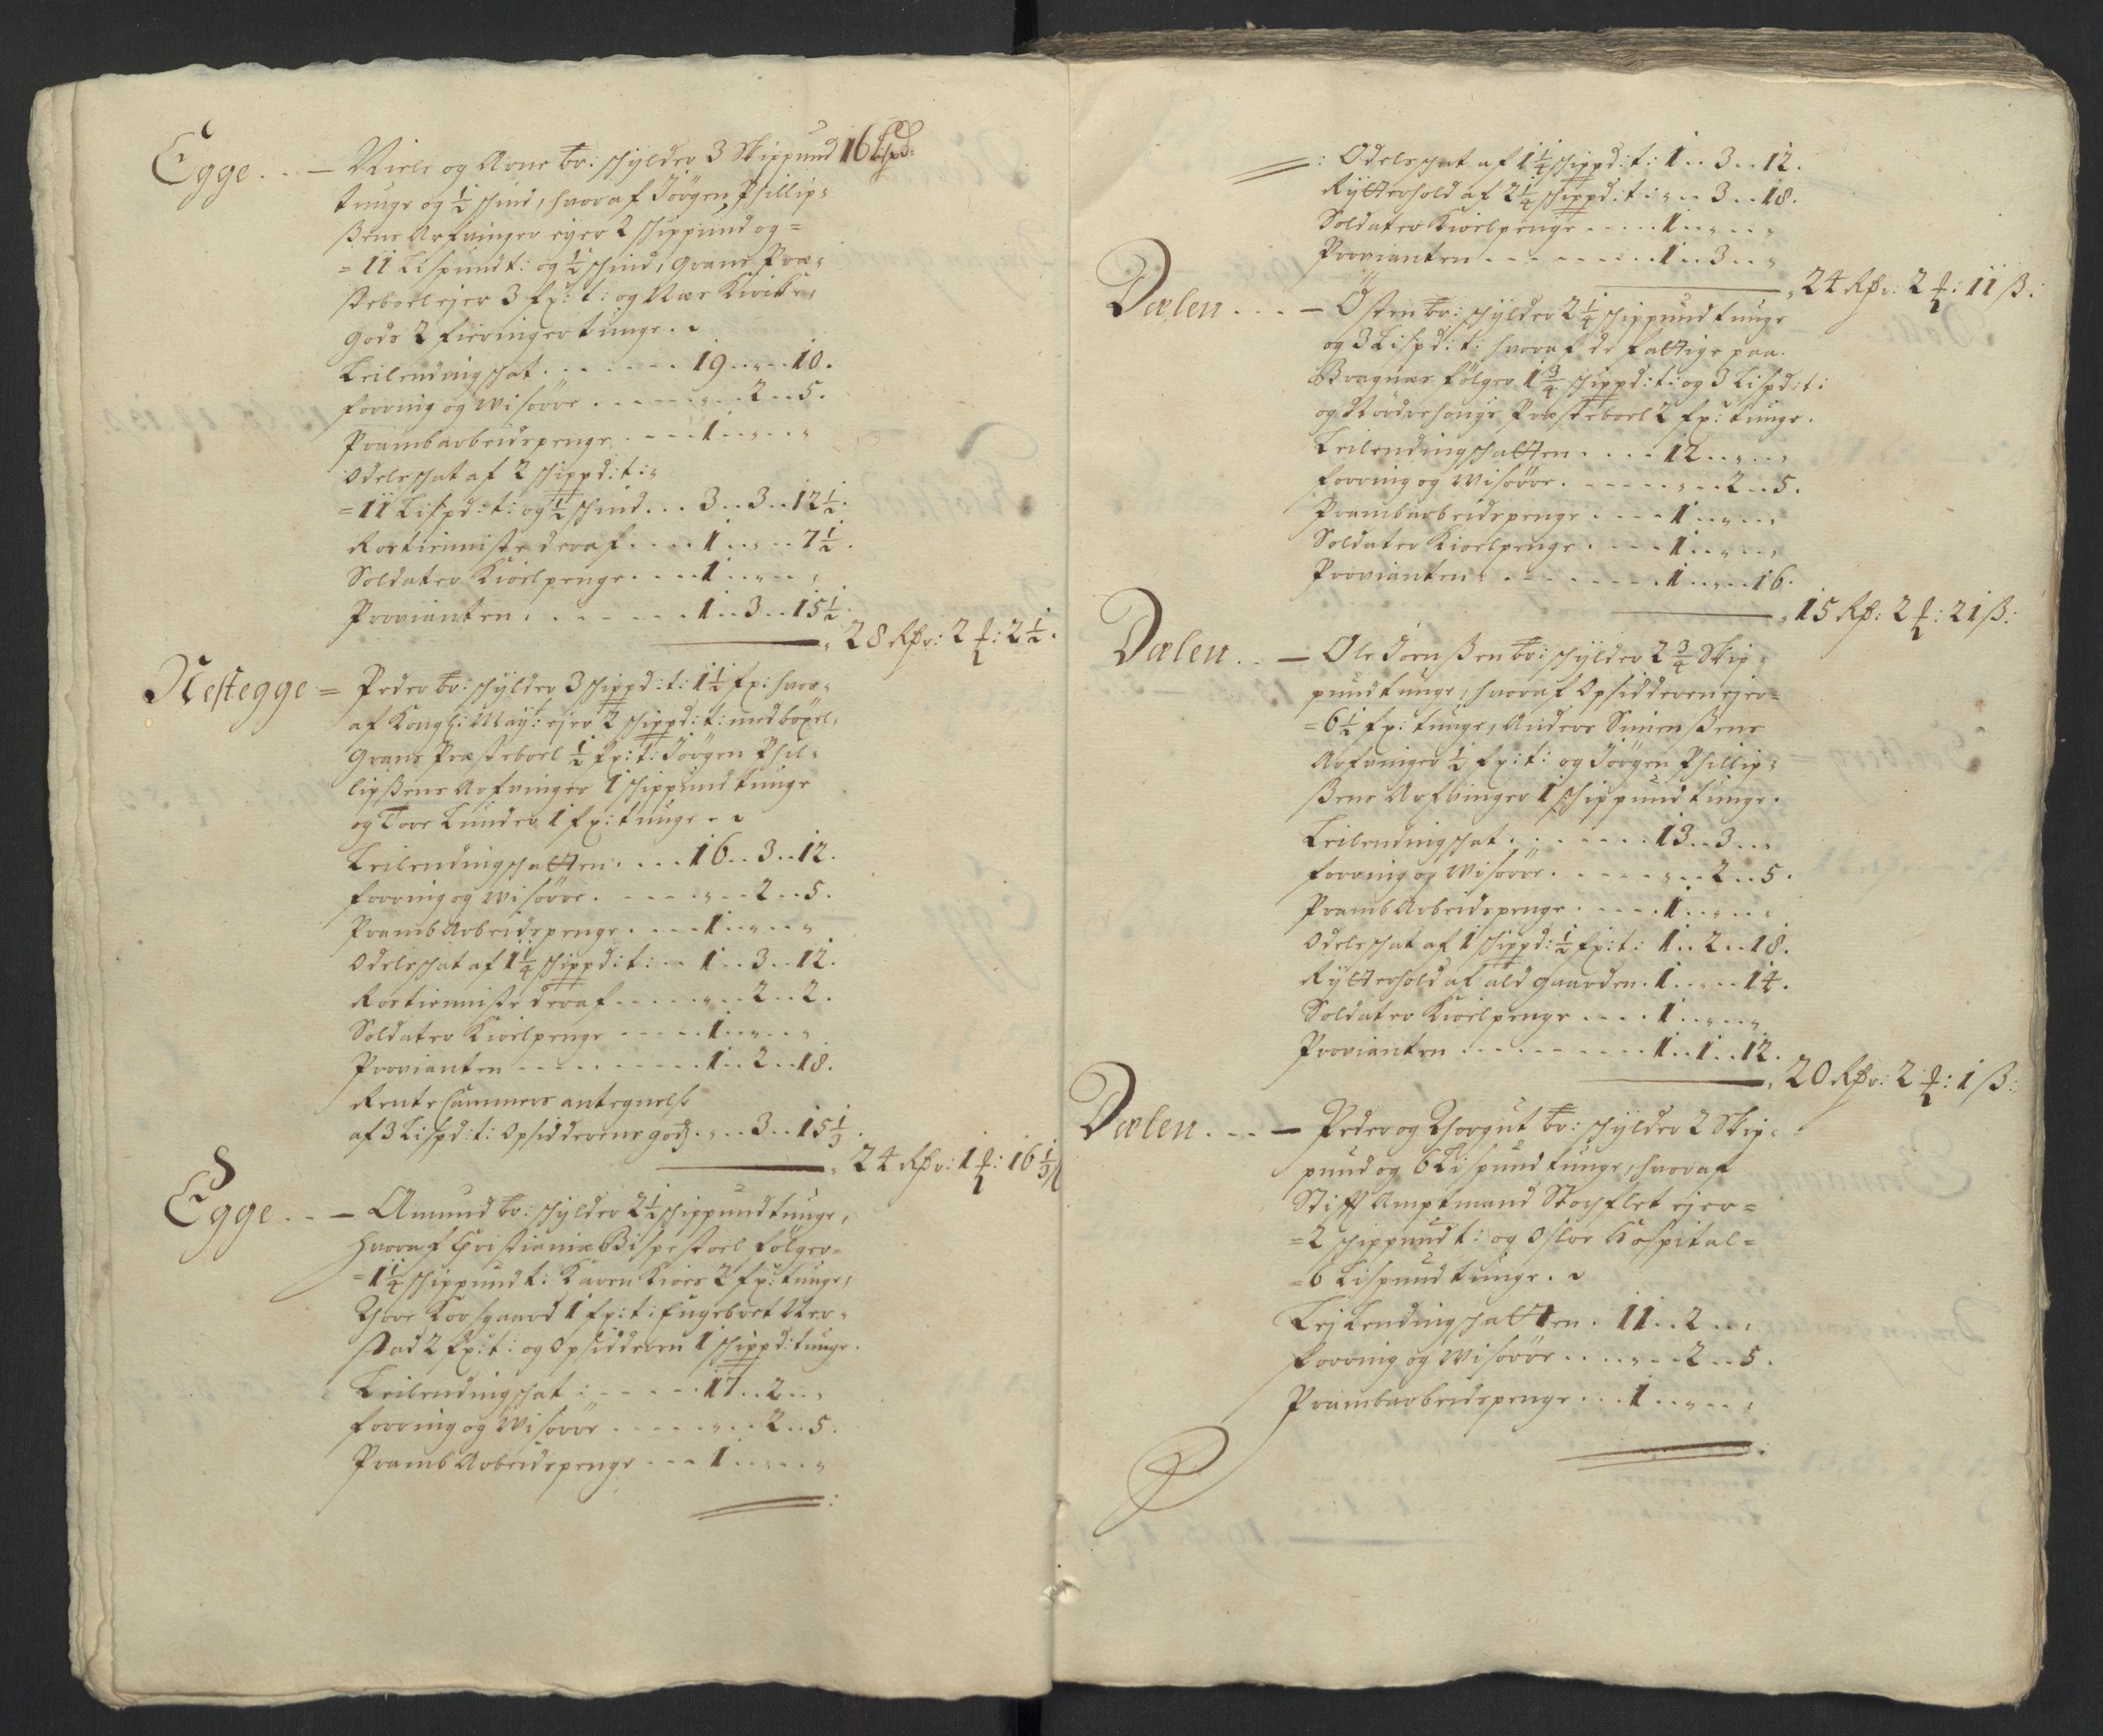 Egge . . . — Niels og Arne br: schylder 3 Skippund 16 Lispd:
tunge og ½ schind, hvoraf Jörgen Phillip=
ßens Arfvinger eyer 2 schippund og =
= 11 Lispund t: og ½ schind, Grans Præ=
steboel ejer 3 fx: t: og Næs Kircke,
gods 2 fieringer tunge. .
Leilendingschat . . . . . . . 19 . . „ . . 10.
foering og Wisøöre . . . . . . „ . . 2 . . 5.
Prambarbeidspenge . . . . 1 . . „ . . „
Odelsschat af 2 schippd: t: „
= 11 Lispd: t: og ½ schind . . . 3 . . 3 . . 12½.
Rostienniste deraf . . . . 1 . . „ . . 7½.
Soldater Kioelpenge . . . . 1 . . „ . . „
Provianten . . . . . . . . 1 . . 3 . . 15½.
28 Rdr: 2 ƒ: 2½.
Nestegge = Peder br: schylder 3 schippd: t: 1½ fx: hvor=
af Kongl: Mayt: ejer 2 schippd: t: med böxel,
Grans Præsteboel ½ fx: t: Jörgen Phil=
lipßens Arfvinger 1 schippund tunge
og Tore Lunder 1 fx: tunge . .
Leilendingschatten . . . . 16 . . 3 . . 12.
foering og Wisøöre . . . . . „ . . 2 . . 5.
Pramb Arbeidspenge . . . . 1 . . „ . . „
Odelsschat af 1¼ schippd: t: . . 1 . . 3 . . 12.
Rostienniste deraf . . . . . „ . . 2 . . 2.
Soldater Kioelpenge . . . . . 1 . . „ . . „
Provianten . . . . . . . . . . 1 . . 2 . . 18.
Rente Cammers antegnelse
af 3 Lispd: t: Opsidderens gods . „ . . 3 . . 15⅓.
24 Rdr: 1 ƒ: 16⅓ ß
Egge . . . — Amund br: schylder 2½ schippund tunge,
hvoraf Christianiæ Bispestoel fölger =
= 1¼ schippund t: Karen Kiærs 2 fx: tunge,
Thore Korsgaard 1 fx: t: Engebret Ner=
stad 2 fx: t: og Opsidderen 1 schippd: tunge.
Leilendingschat : . . . . . 17 . . 2 . . „
foering og Wisøöre . . . . . „ . . 2 . . 5.
Pramb Arbeidspenge . . . 1 . . „ . . „
: Odelsschat af 1¼ schippd: t: 1 . . 3 . . 12.
Rytterhold af 2¼ schippd: t: „ . . 3 . . 18.
Soldater Kioelpenge . . . . . 1 . . „ . . „
Provianten . . . . . . . . . 1 . . 3 . . „
24 Rdr: 2 ƒ: 11 ß:
Dælen . . . . — Östen br: schylder 2¼ schippund tunge
og 3 Lispd: t: hvoraf de fattige paa
Bragnæs fölger 1¾ schippd: t: og 3 Lispd: t:
og Nordrehougs Præsteboel 2 fx: tunge.
Leilendingschatten . . . . 12 . . „ . . „
foering og Wisøöre . . . . . . „ . . 2 . . 5.
Prambarbeidspenge . . . . 1 . . „ . . „
Soldater Kioelpenge . . . . 1 . . „ . . „
Provianten . . . . . . . . . 1 . . „ . . 16.
15 Rd: 2 ƒ: 21 ß:
Dælen . . — Ole Joenßen br: schylder 2¾ Skip=
pund tunge, hvoraf Opsidderen ejer =
= 6½ fx: tunge, Anders Simenßens
Arfvinger ½ fx: t: og Jörgen Phillip=
ßens Arfvinger 1 schippund tunge.
Leilendingschat . . . . . . . 13 . . 3 . . „
foering og Wisøöre . . . . . . „ . . 2 . . 5.
Pramb Arbeidspenge . . . . . 1 . . „ . . „
Odelsschat af 1 schippd: ½ fx: t: 1 . . 2 . . 18.
Rytterhold af ald gaarden . 1 . . „ . . 14.
Soldater Kioelpenge . . . . 1 . . „ . . „
Provianten . . . . . . . . . . 1 . . 1 . . 12.
20 Rdr: 2 ƒ: 1 ß:
Dælen . . . — Peder og Thorgut br: schylder 2 Skip=
pund og 6 Lispund tunge, hvoraf
Stifft Amptmand Stochflet ejer =
= 2 schippund t: og Osloe Hospital =
= 6 Lispund tunge. .
Lejlendingschatten . 11 . . 2 . . „
foering og Wisøöre . . . . „ . . 2 . . 5.
Prambarbeidspenge . . . 1 . . „ . . „